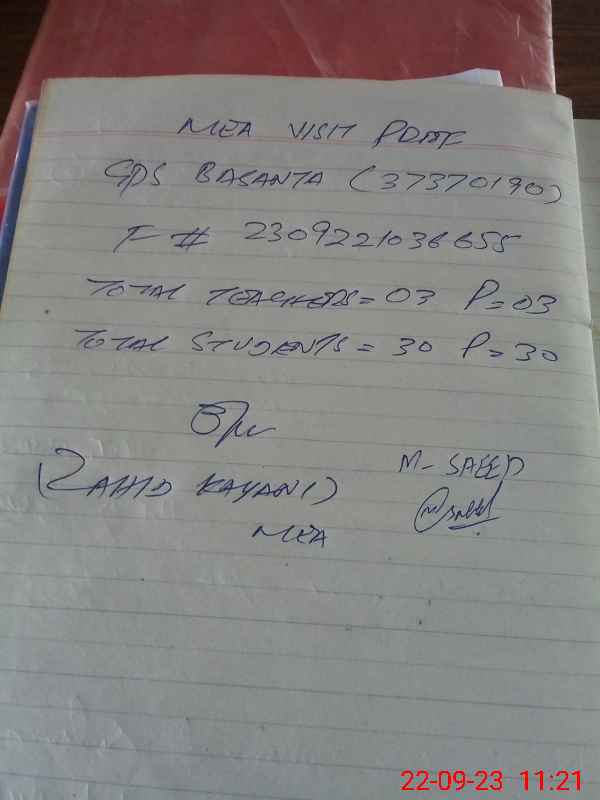 MEA VISIT PROOF
GPS BASANTA (37370190)
F # 2309221036655
TOTAL TEACHERS = 03 P = 03
TOTAL STUDENTS = 30 P = 30
(ZAHID KAYANI)
MEA
M- SAEED
22-09-23 11:21